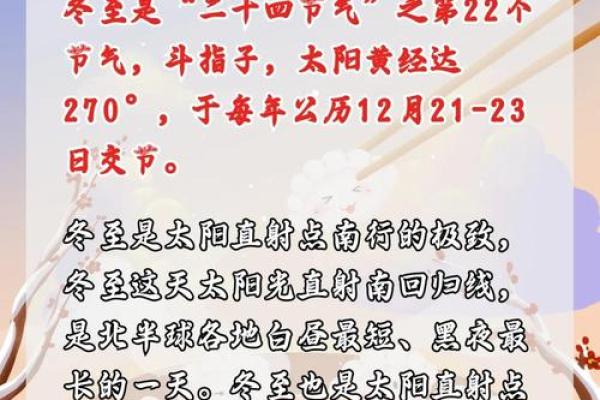 冬至是“二十四节气”之第22个
节气，斗指子，太阳黄经达
270°，于每年公历12月21-23
日交节。
冬至是太阳直射点南行的极致，
冬至这天太阳光直射南回归线，
是北半球各地白昼最短、黑夜最
长的一天。冬至也是太阳直射点